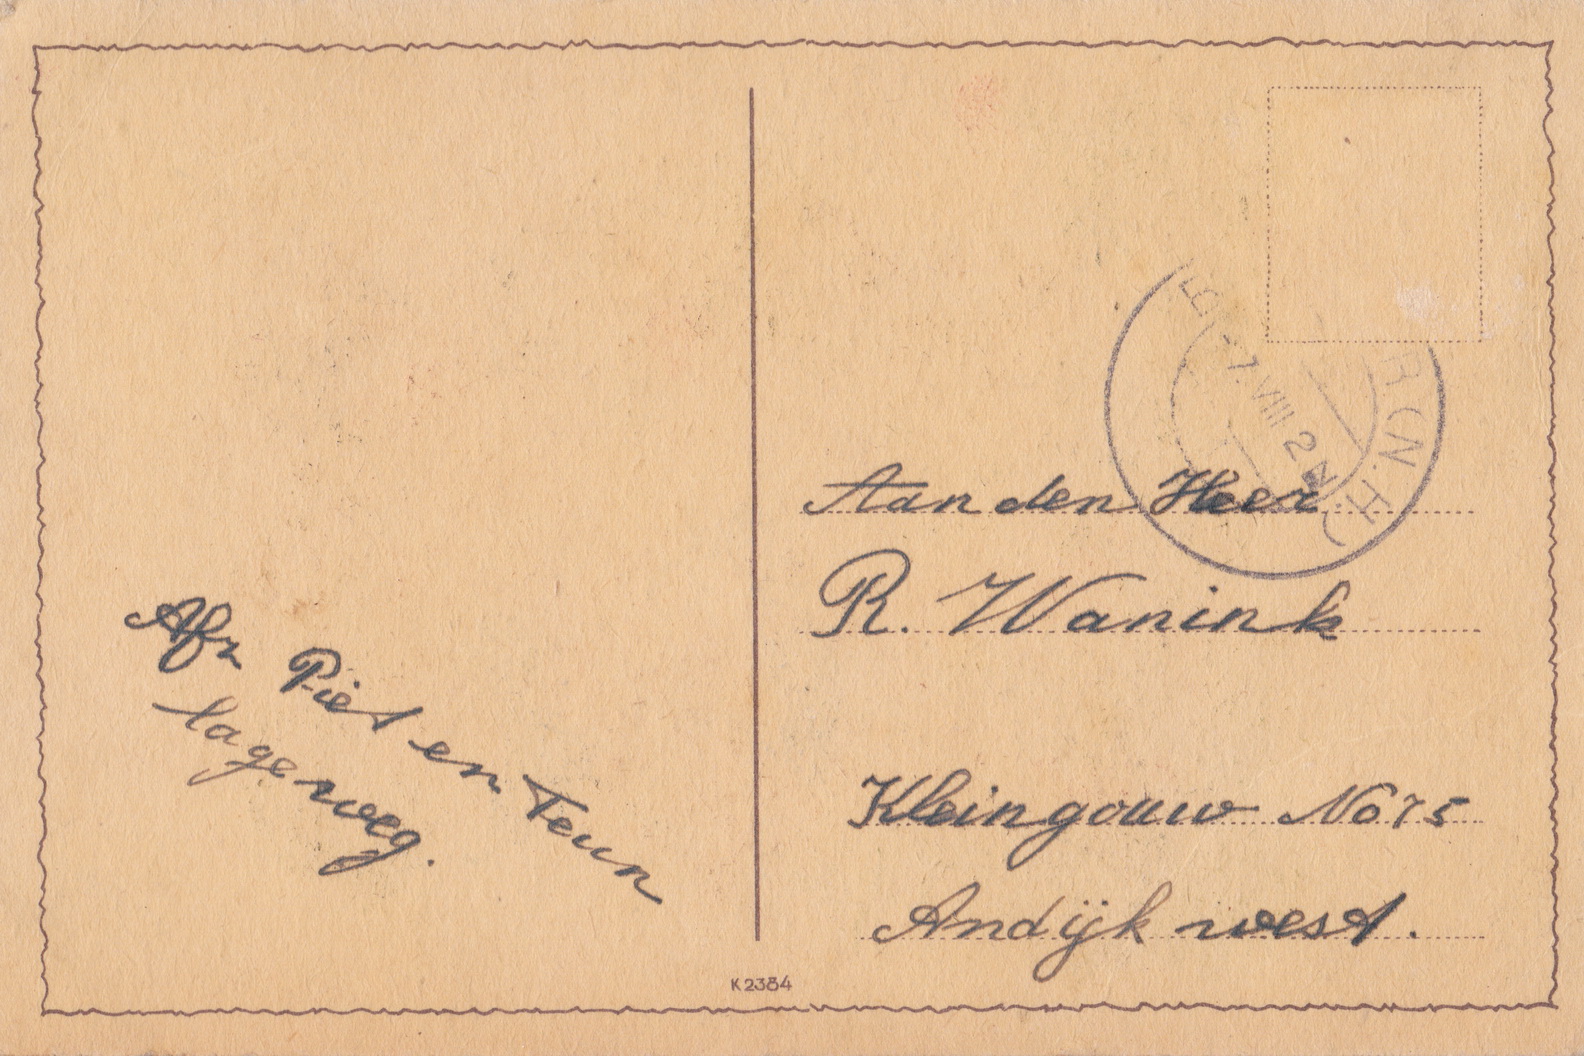 Afz Piet en Teun
lagerweg.
K2384
-7.VIII 2 N
R (N.H.)
Aan den Heer
R. Wanink
Kleingouw No 75
Andijk west.